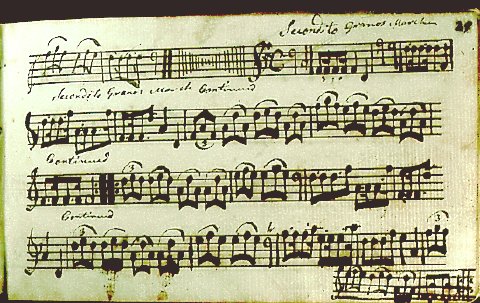 Secondito Grano's March
29
Secondito Grano's March Continued
Continued
Continued
3
3
3